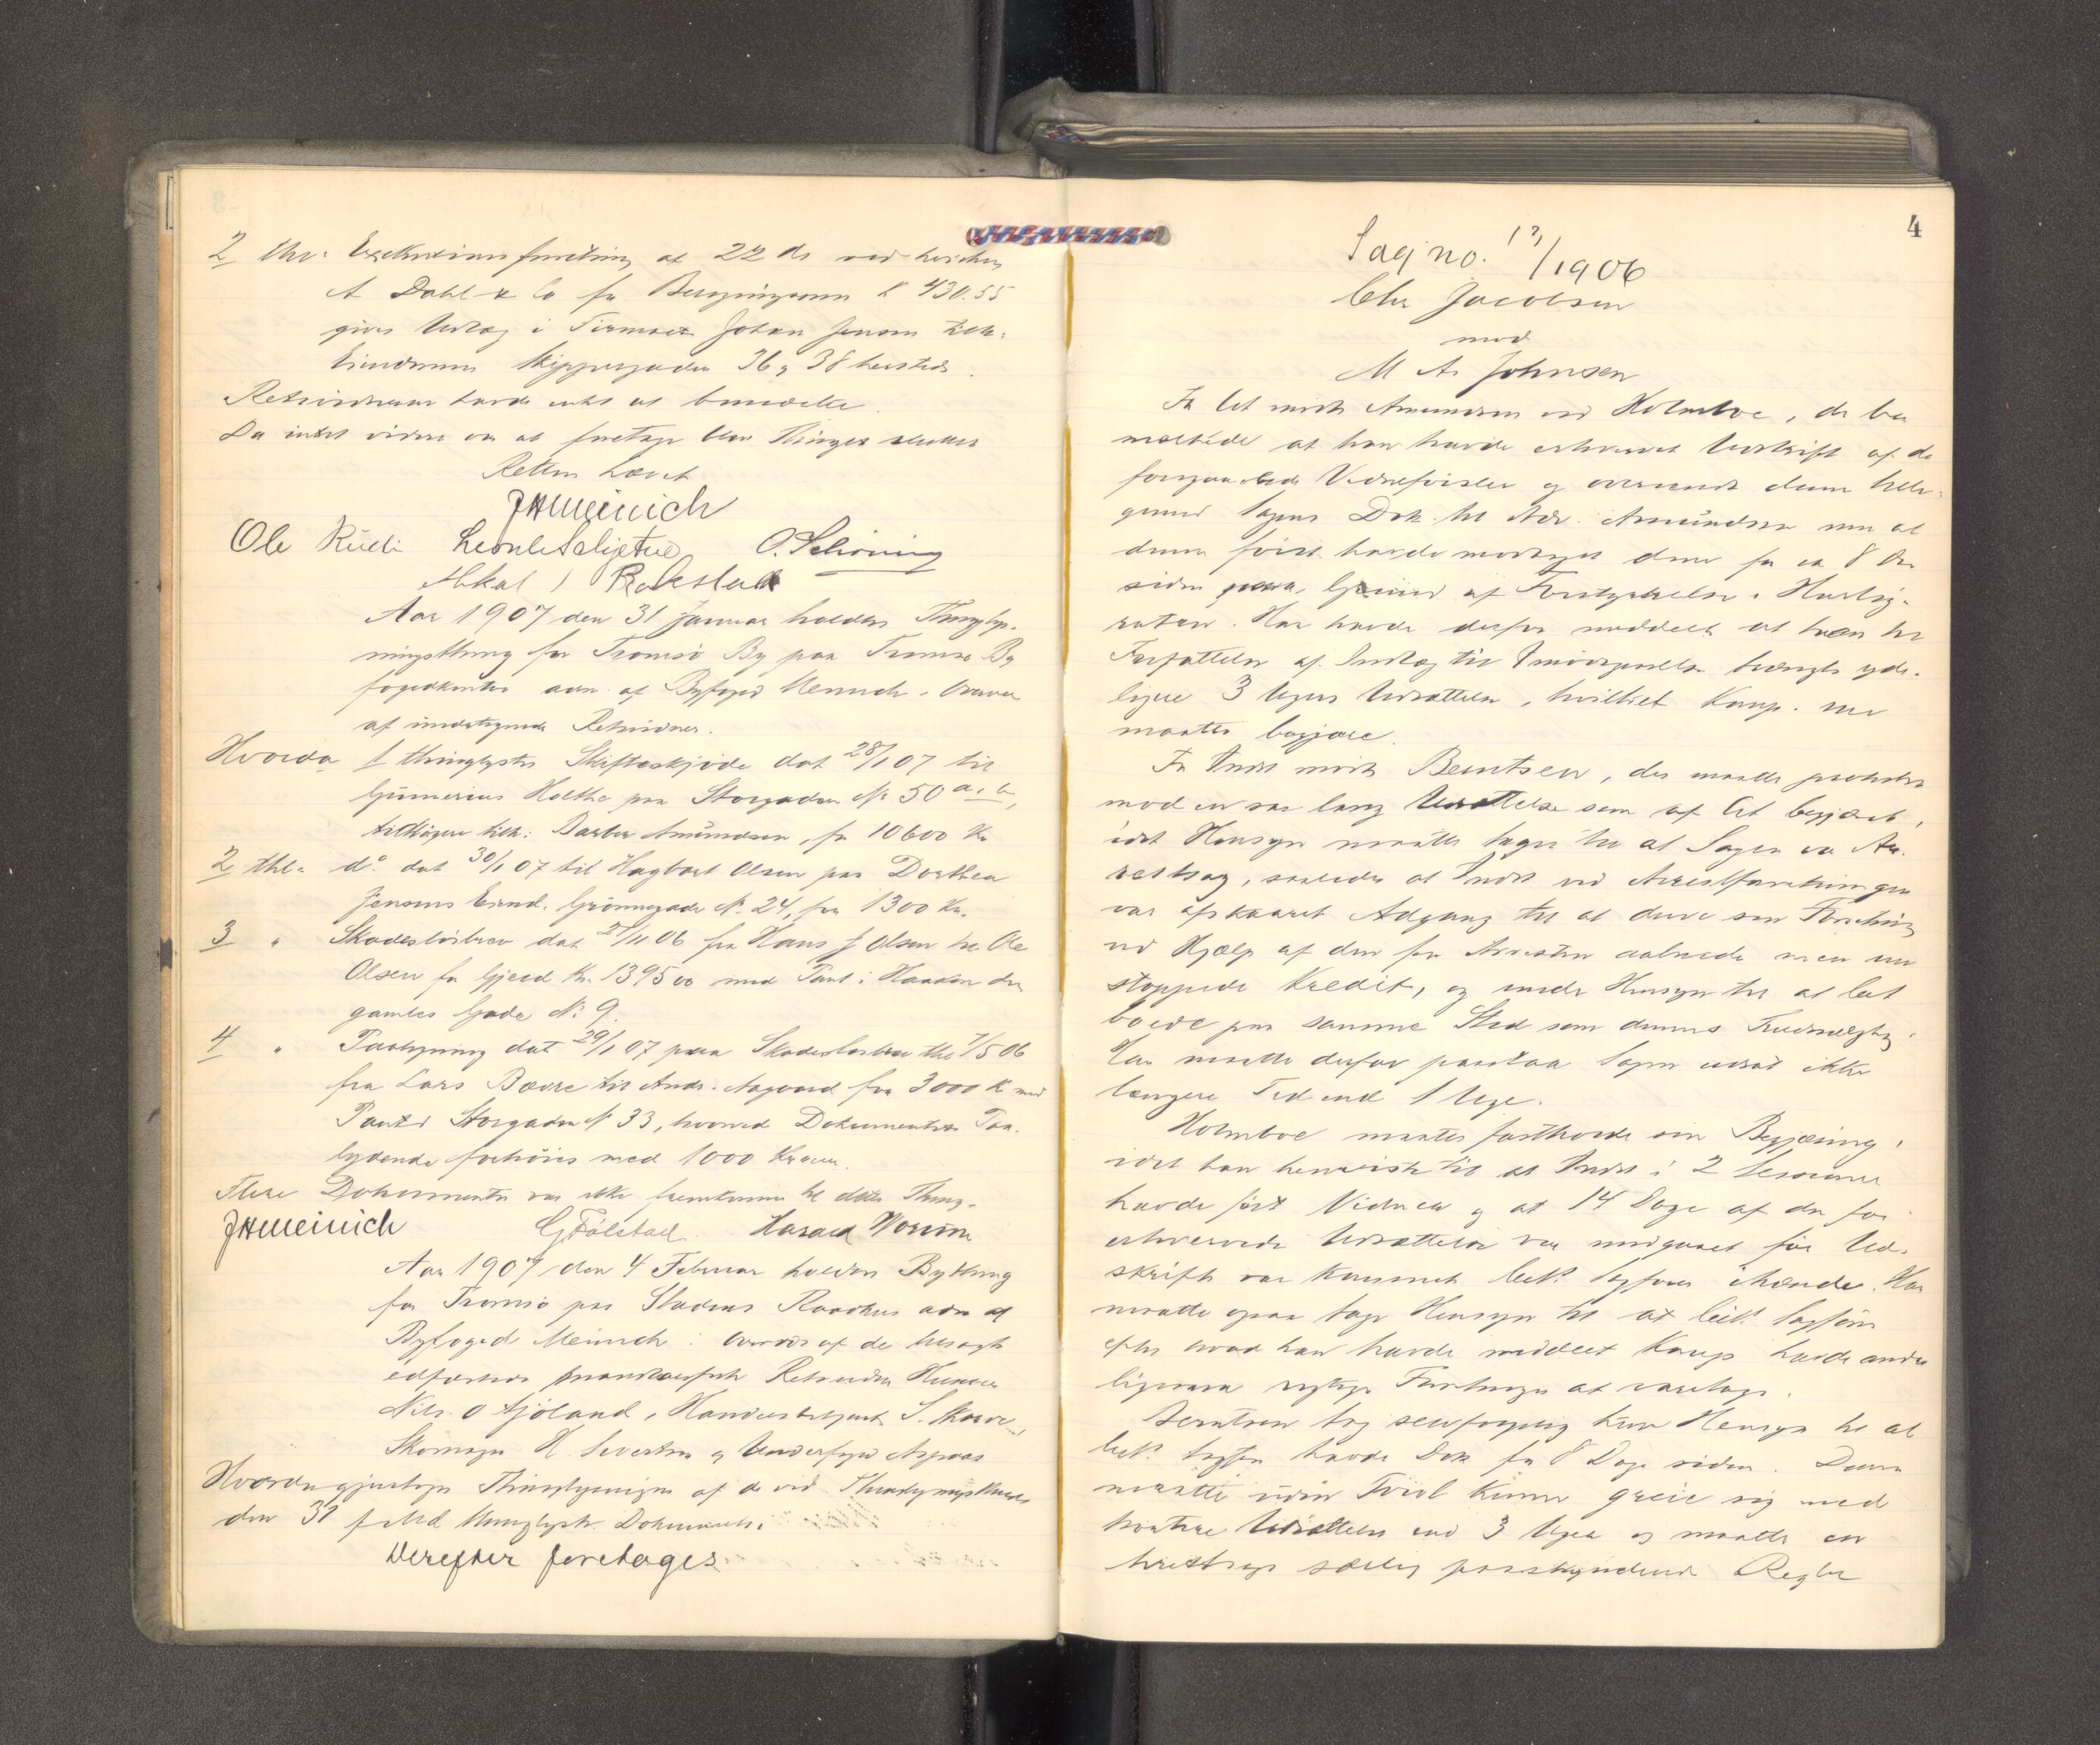 2 thl: Exekutionsforretning af 22 ds ved hvilken
A Dahl & Co for Bergningssum K 430.55
gives Udlæg i Firmaet Johan Jensen tilh:
Eiendomme Skippergaden 36 og 38 hersteds.
Retsvidnerne havde intet at bemærke.
Da intet videre var at foretage blev Thinget sluttet
Retten hævet
JHMeinich
Ole O. Schöning
Aar 1907 den 31 Januar holdtes Thinglys-
ningsthing for Tromsö By paa Tromsö By
fogedkontor adm. af Byfoged Meinich i Overvær
af undertegnede Retsvidner.
Hvorda 1 thinglystes Skifteskjöde dat 28/1 07 til
Gunnerius Holthe paa Storgaden No 50 a. b,
tidligere tilh: Barber Amundsen, for 10600 Kr
2 thl: do dat 30/1 07 til Hagbart Olsen paa Dorthea
Jensens Eiend. Grönnegade No. 24, for 1300 Kr.
3 " Skadeslösbrev dat 27/11 06 fra Hans J Olsen til Ole
Olsen for Gjæld Kr. 1395 00 med Pant i Haakon den
gamles Gade No 9.
4 " Paategning dat 29/1 07 paa Skadeslösbrev thl 7/5 06
fra Lars Bævre til Andr. Aagaard for 3000 K med
Pant i Storgaden No 33, hvorved Dokumentets Paa-
lydende forhöies med 1000 Kroner.
Flere Dokumenter var ikke fremkomne til dette Thing.
JHMeinich G Følstad Harald
Aar 1907 den 4 Februar holdtes Bything
for Tromsö paa Stadens Raadhus adm af
Byfoged Meinich i Overvær af de
edfæstede Retsvidner
Nils O Mjöland, Handelsbetjent S.
Skomager H. Sivertsen og Underfoged Aspaas
Hvorda gjentoges Thinglysningen af de ved Thinglysningsthinget
den 31 f Md thinglyste Dokumenter.
Derefter foretages
4
Sag no. 13/1906
Chr Jacobsen
mod
M A Johnsen
For Cit mödte Amundsen ved Holmboe, der be
mærkede at han havde erhvervet Udskrift af de
foregaaende Vidneförsler og oversendt denne tilli-
gemed Sagens Dok. til Adv. Amundsen men at
denne först havde modtaget dem for ca 8 Da
siden paa Grund af Forstyrrelser i Hurtig-
ruten. Han havde derfor meddelt at han til
Forfattelse af Indlæg til Imödegaaelse trængte yder-
ligere 3 Ugers Udsættelse, hvilket Komp. nu
maatte begjære.
For Indst mödte Berntsen, der maatte protestere
mod en saa lang Udsættelse som af Cit begjæret,
idet Hensyn maatte tages til at Sagen var Ar-
restsag, saaledes at Indst ved Arrestforretningen
var afskaaret Adgang til at drive sin Forretning
ved Hjælp af den för Arresten aabnede men nu
stoppede Kredit, og under Hensyn til at Cit
boede paa samme Sted som dennes
Han maatte derfor paastaa Sagen udsat ikke
længere Tid end 1 Uge.
Holmboe maatte fastholde sin Begjæring,
idet han henviste til at Indst i 2 Sessioner
havde fört Vidner og at 14 Dage af den for
erhvervede Udsættelse var medgaaet för Ud-
skrift var kommet Cits Sagförer ihænde. Han
maatte ogsaa tage Hensyn til at Cits Sagförer
efter hvad han havde meddelt Komp havde andre
ligesaa vigtige Forretninger at varetage.
Berntsen tog selvfölgelig kun Hensyn til at
Cits Sagförer havde Dok for 8 Dage siden. Denne
maatte uden Tvivl kunne greie sig med
kortere Udsættelse end 3 Uger og maatte en
Arrestsags særlig paaskyndende Regler